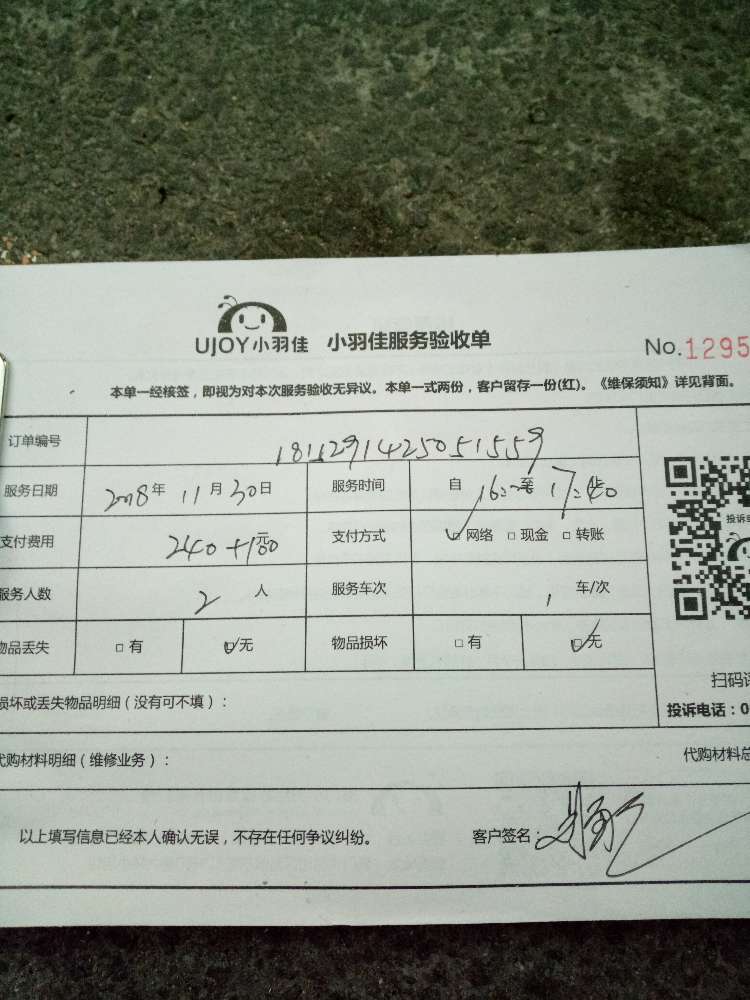 UJOY小羽佳 小羽佳服务验收单
No.1295
本单一经核签，即视为对本次服务验收无异议。本单一式两份，客户留存一份(红)。《维保须知》详见背面。
订单编号 1811291425051559
服务日期 2018年 11月30日 服务时间 自 16: 至 17:40 止
支付费用 240+100 元 支付方式 ☑网络 □现金 □转账
服务人数 2 人 服务车次 1 车/次
物品丢失 □有 ☑无 物品损坏 □有 ☑无
投诉
扫码
损坏或丢失物品明细（没有可不填）：
投诉电话：0
代购材料明细（维修业务）： 代购材料总
以上填写信息已经本人确认无误，不存在任何争议纠纷。 客户签名：